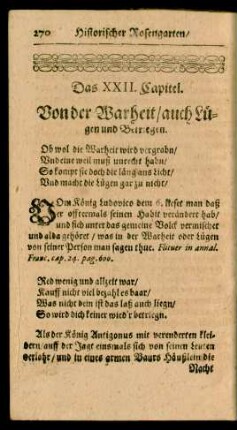 270 Historischer Rosengarten/
Das XXII. Capitel.
Von der Warheit/ auch Lü-
gen und Betriegen.
Ob wol die Warheit wird vergrabn/
Vnd eine weil muß unrecht habn/
So kompt sie doch die läng ans Licht/
Vnd macht die Lügen gar zu nicht/
VOm König Ludovico dem 6. lieset man daß
er offtermals seinen Habit verändert hab/
und sich unter das gemeine Volck vermischet
und alda gehöret/ was in der Warheit oder Lügen
von seiner Person man sagen thue. in annal.
Franc. cap. 24. pag. 600.
Red wenig und allzeit war/
Kauff nicht viel bezahl es baar/
Was nicht dem ist das laß auch liegn/
So wird dich keiner wied'r betriegn.
Als der König Antigonus mit verenderten klei-
dern/ auff der Jagt einsmals sich von seinen Leuten
verlohr/ und in eines armen Baurs Häußlein die
Nacht